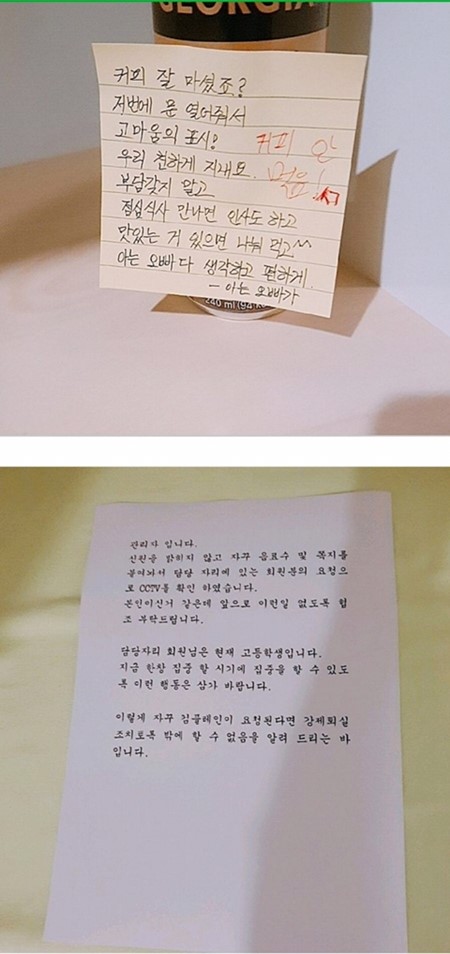 GEORGIA
커피 잘 마셨죠?
저번에 문 열어줘서
고마움의 표시?
우리 친하게 지내요.
부담갖지 말고
점심식사 만나면 인사도 하고
맛있는 거 있으면 나눠 먹고^^
아는 오빠다 생각하고 편하게.
- 아는 오빠가
커피 안
먹음!
240 ml
관리자 입니다.
신원을 밝히지 않고 자꾸 음료수 및 쪽지를
붙여놔서 담당 자리에 있는 회원분의 요청으
로 CCTV를 확인 하였습니다.
본인이신거 같은데 앞으로 이런일 없도록 협
조 부탁드립니다.
담당자리 회원님은 현재 고등학생입니다.
지금 한창 집중 할 시기에 집중을 할 수 있도
록 이런 행동은 삼가 바랍니다.
이렇게 자꾸 컴플레인이 요청된다면 강제퇴실
조치로톡 밖에 할 수 없음을 알려 드리는 바
입니다.